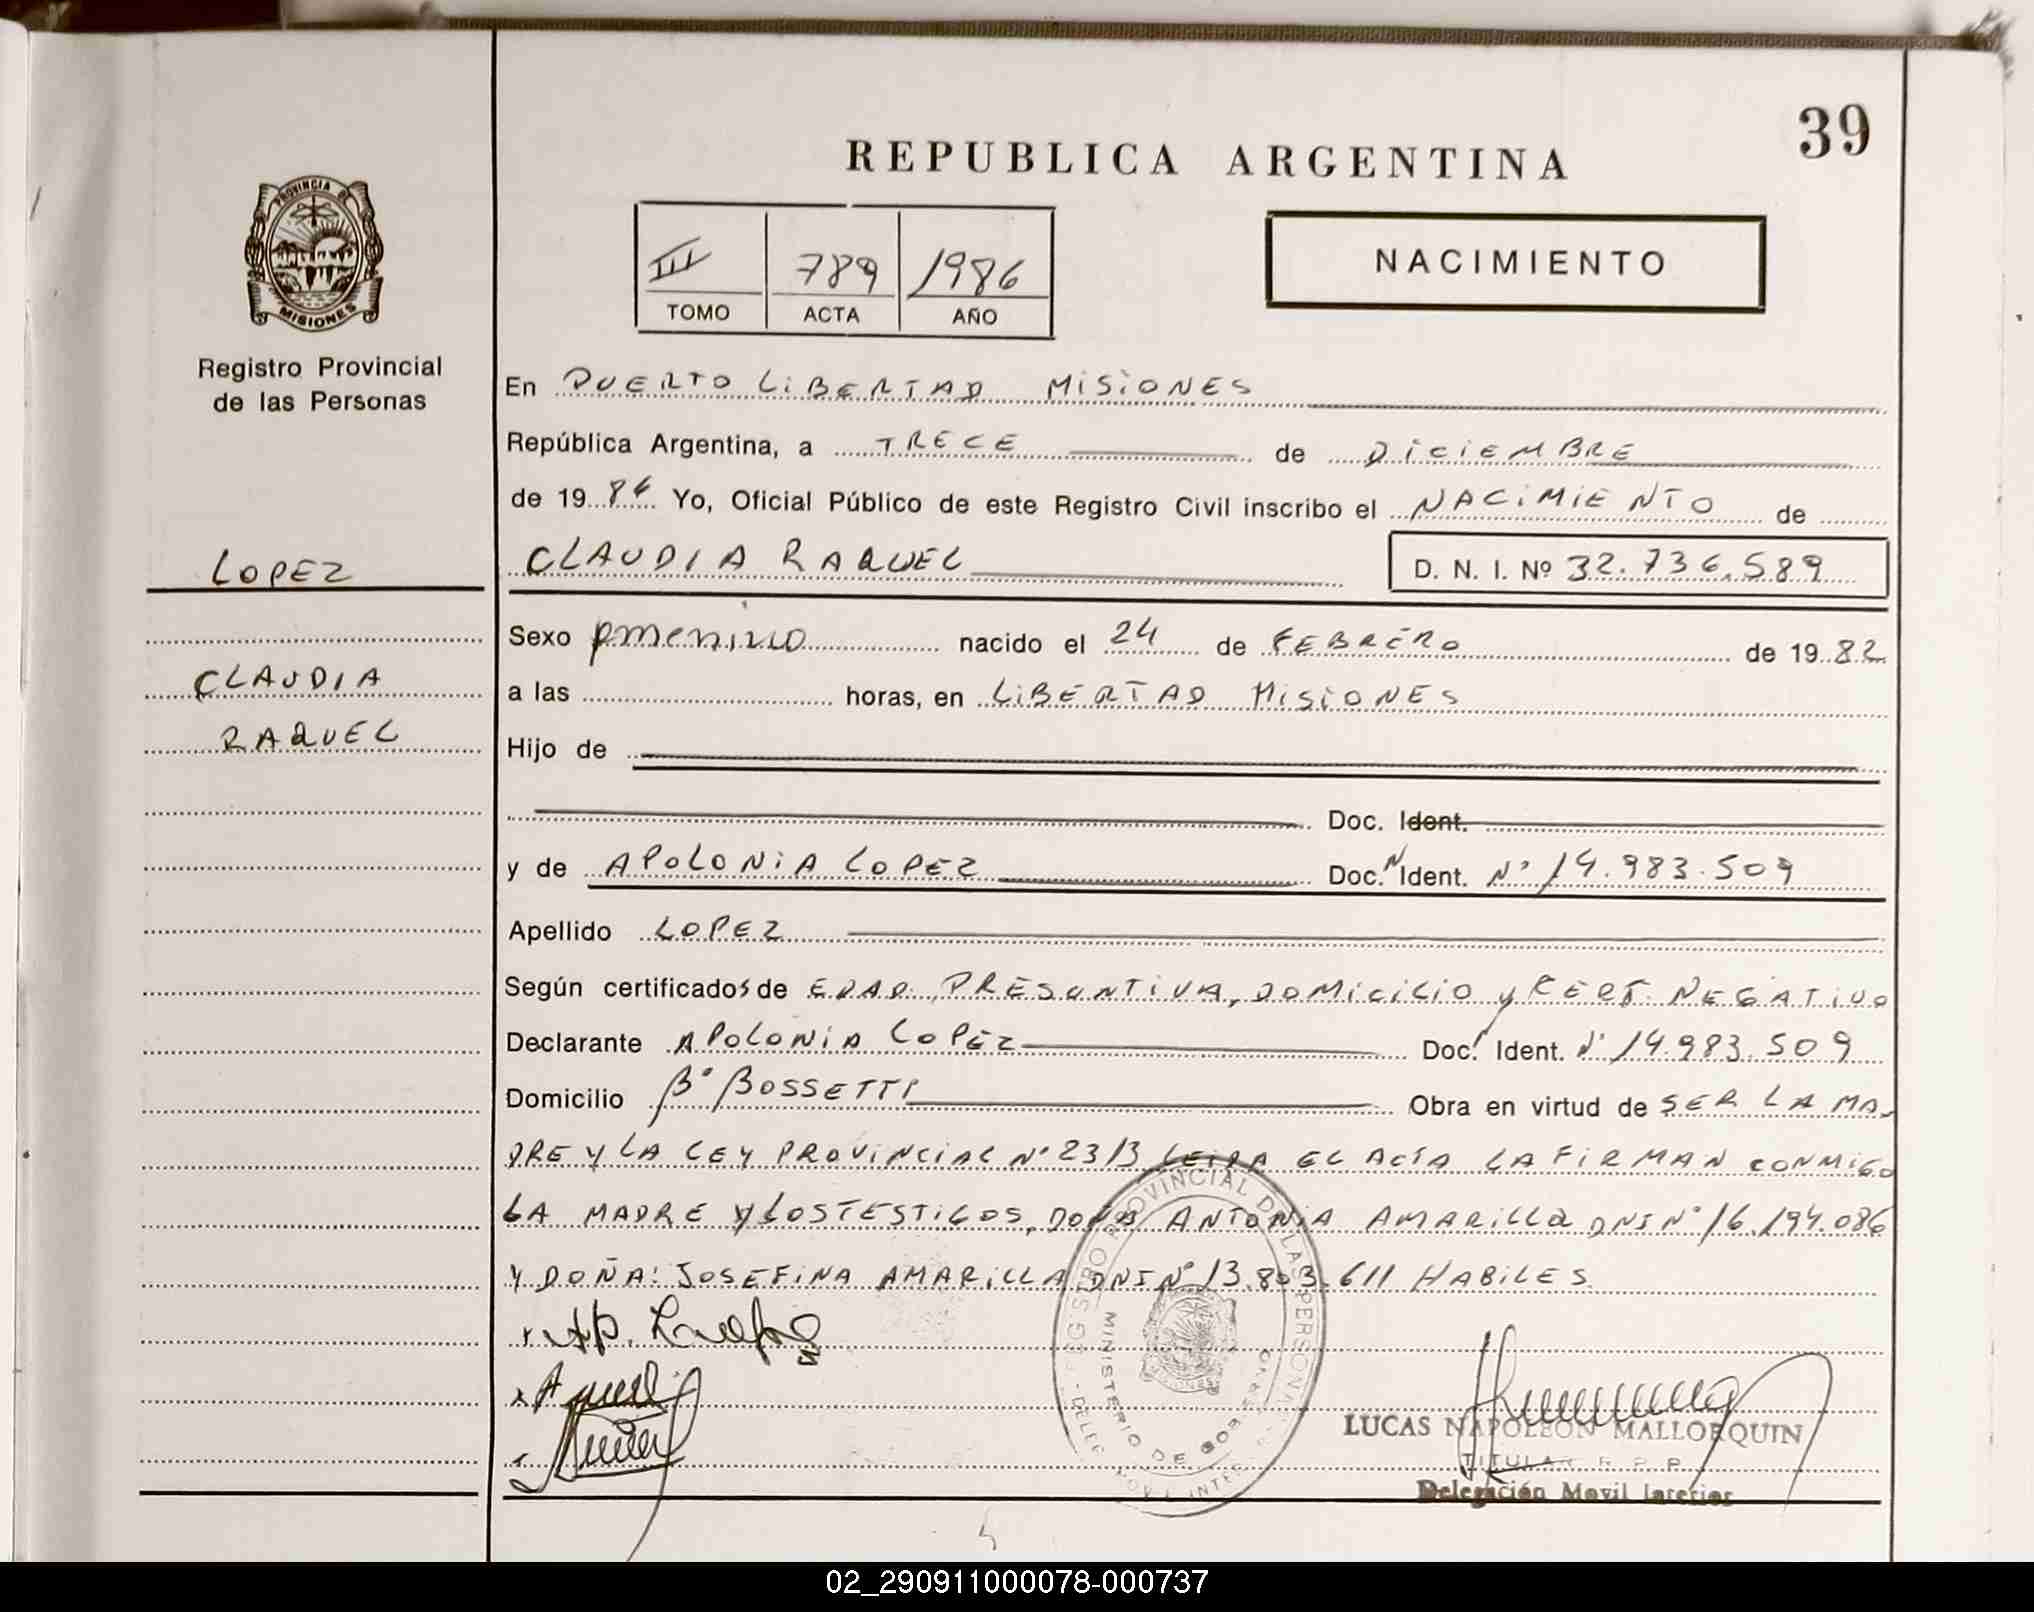 39
REPUBLICA ARGENTINA
PROVINCIA DE
MISIONES
III 789 1986
TOMO ACTA AÑO
NACIMIENTO
Registro Provincial
de las Personas
LOPEZ
CLAUDIA
RAQUEL
En PUERTO LIBERTAD MISIONES
República Argentina, a TRECE de DICIEMBRE
de 19 86 Yo, Oficial Público de este Registro Civil inscribo el NACIMIENTO de
CLAUDIA RAQUEL D. N. I. Nº 32.736.589
Sexo femenino nacido el 24 de FEBRERO de 19 82
a las horas, en LIBERTAD MISIONES
Hijo de
Doc. Ident.
y de APOLONIA LOPEZ Doc. N Ident. Nº 14.983.509
Apellido LOPEZ
Según certificados de EDAD PRESUNTIVA, DOMICILIO y CERT. NEGATIVO
Declarante APOLONIA LOPEZ Doc. Ident. Nº 14.983.509
Domicilio Bº BOSSETTI Obra en virtud de SER LA MA-
DRE Y LA LEY PROVINCIAL Nº 2313 LEIDA EL ACTA LA FIRMAN CONMIGO
LA MADRE Y LOS TESTIGOS, DOÑA ANTONIA AMARILLA DNI Nº 16.194.086
Y DOÑA: JOSEFINA AMARILLA DNI Nº 13.803.611 HABILES
REGISTRO PROVINCIAL DE LAS PERSONAS
MINISTERIO DE GOBIERNO
LUCAS NAPOLEON MALLORQUIN
TITULAR R. P. P.
Delegación Movil
02_290911000078-000737